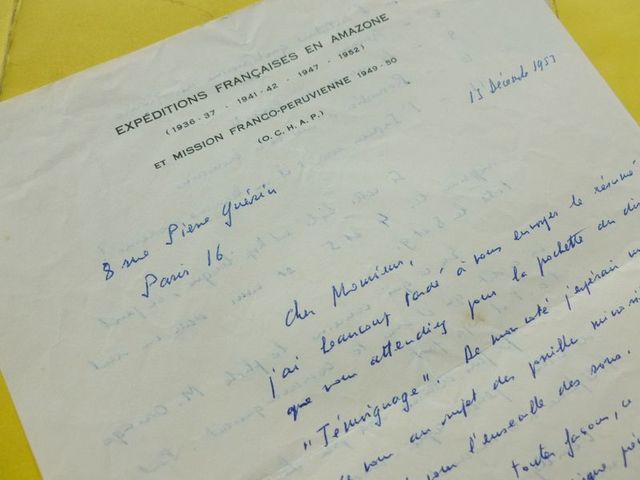 EXPÉDITIONS FRANÇAISES EN AMAZONE
(1936-37 - 1941-42 - 1947 - 1952)
ET MISSION FRANCO-PERUVIENNE 1949-50
(O.C.H.A.P.)
15 Décembre 1953
8 rue Pierre Guérin
Paris 16
Cher Monsieur,
j'ai beaucoup tardé à vous envoyer le résumé
que vous attendiez pour la pochette du
"Témoignage". De mon côté j'espérais
au sujet des
pour l'ensemble des
toutes façons,